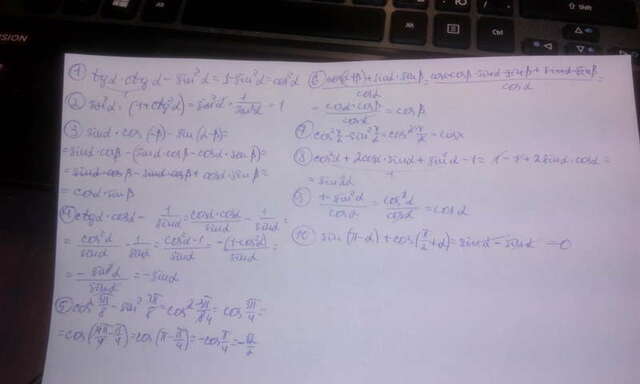 Shift
Alt Gr
① tgα·ctgα − sin²α = 1 − sin²α = cos²α
② sin²α · (1+ctg²α) = sin²α · 1/sin²α = 1
③ sinα · cos(−β) − sin(α−β) =
= sinα·cosβ − (sinα·cosβ − cosα·sinβ) =
= sinα·cosβ − sinα·cosβ + cosα·sinβ =
= cosα·sinβ
④ ctgα·cosα − 1/sinα = cosα·cosα/sinα − 1/sinα =
= cos²α/sinα − 1/sinα = cos²α−1/sinα = −(1−cos²α)/sinα =
= −sin²α/sinα = −sinα
⑤ cos² 3π/8 − sin² 3π/8 = cos 2 3π/8 4 = cos 3π/4 =
= cos(4π/4 − π/4) = cos(π − π/4) = −cos π/4 = −√2/2
⑥ cos(α+β)+sinα·sinβ/cosα = cosα·cosβ−sinα·sinβ+sinα·sinβ/cosα =
= cosα·cosβ/cosα = cosβ
⑦ cos² x/2 − sin² x/2 = cos 2 x/2 = cosx
⑧ cos²α + 2cosα·sinα + sin²α − 1 = 1 − 1 + 2sinα·cosα =
= sin2α
⑨ 1−sin²α/cosα = cos²α/cosα = cosα
⑩ sin(π−α) + cos(π/2+α) = sinα − sinα = 0